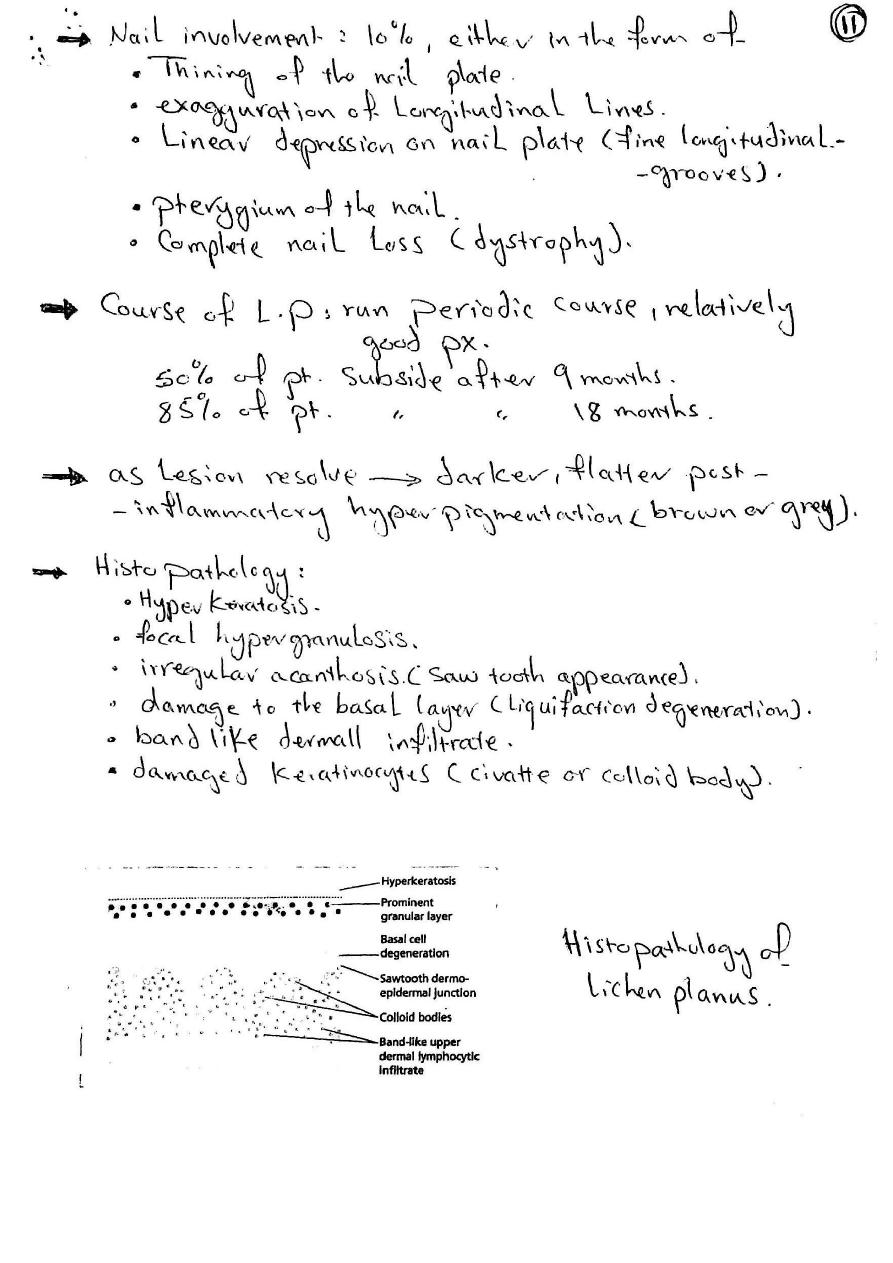 11
Nail involvement : 10%, either in the form of
• Thining of the nail plate.
• exagguration of Longitudinal Lines.
• Linear depression on nail plate (fine longitudinal-
-grooves).
• pterygium of the nail.
• Complete nail Loss (dystrophy).
Course of L.p : run periodic course, relatively
good px.
50% of pt. subside after 9 months.
85% of pt. " " 18 months.
as Lesion resolve → darker, flatter post-
-inflammatory hyperpigmentation (brown or grey).
Histopathology :
• Hyperkeratosis.
• focal hypergranulosis.
• irregular acanthosis. (saw tooth appearance).
• damage to the basal layer (liquifaction degeneration).
• band like dermall infiltrate.
• damaged keratinocytes (civatte or colloid body).
Hyperkeratosis
Prominent
granular layer
Basal cell
degeneration
Sawtooth dermo-
epidermal junction
Colloid bodies
Band-like upper
dermal lymphocytic
infiltrate
Histopathology of
Lichen planus.